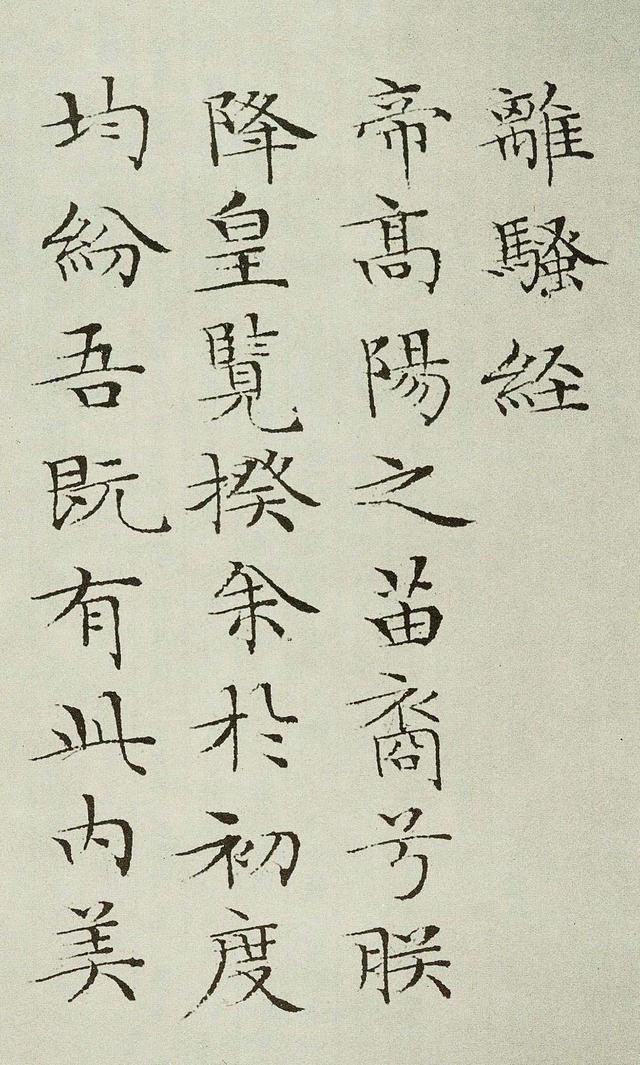 離騷経
帝高陽之苗裔兮朕
降皇覽揆余於初度
均紛吾既有此内美